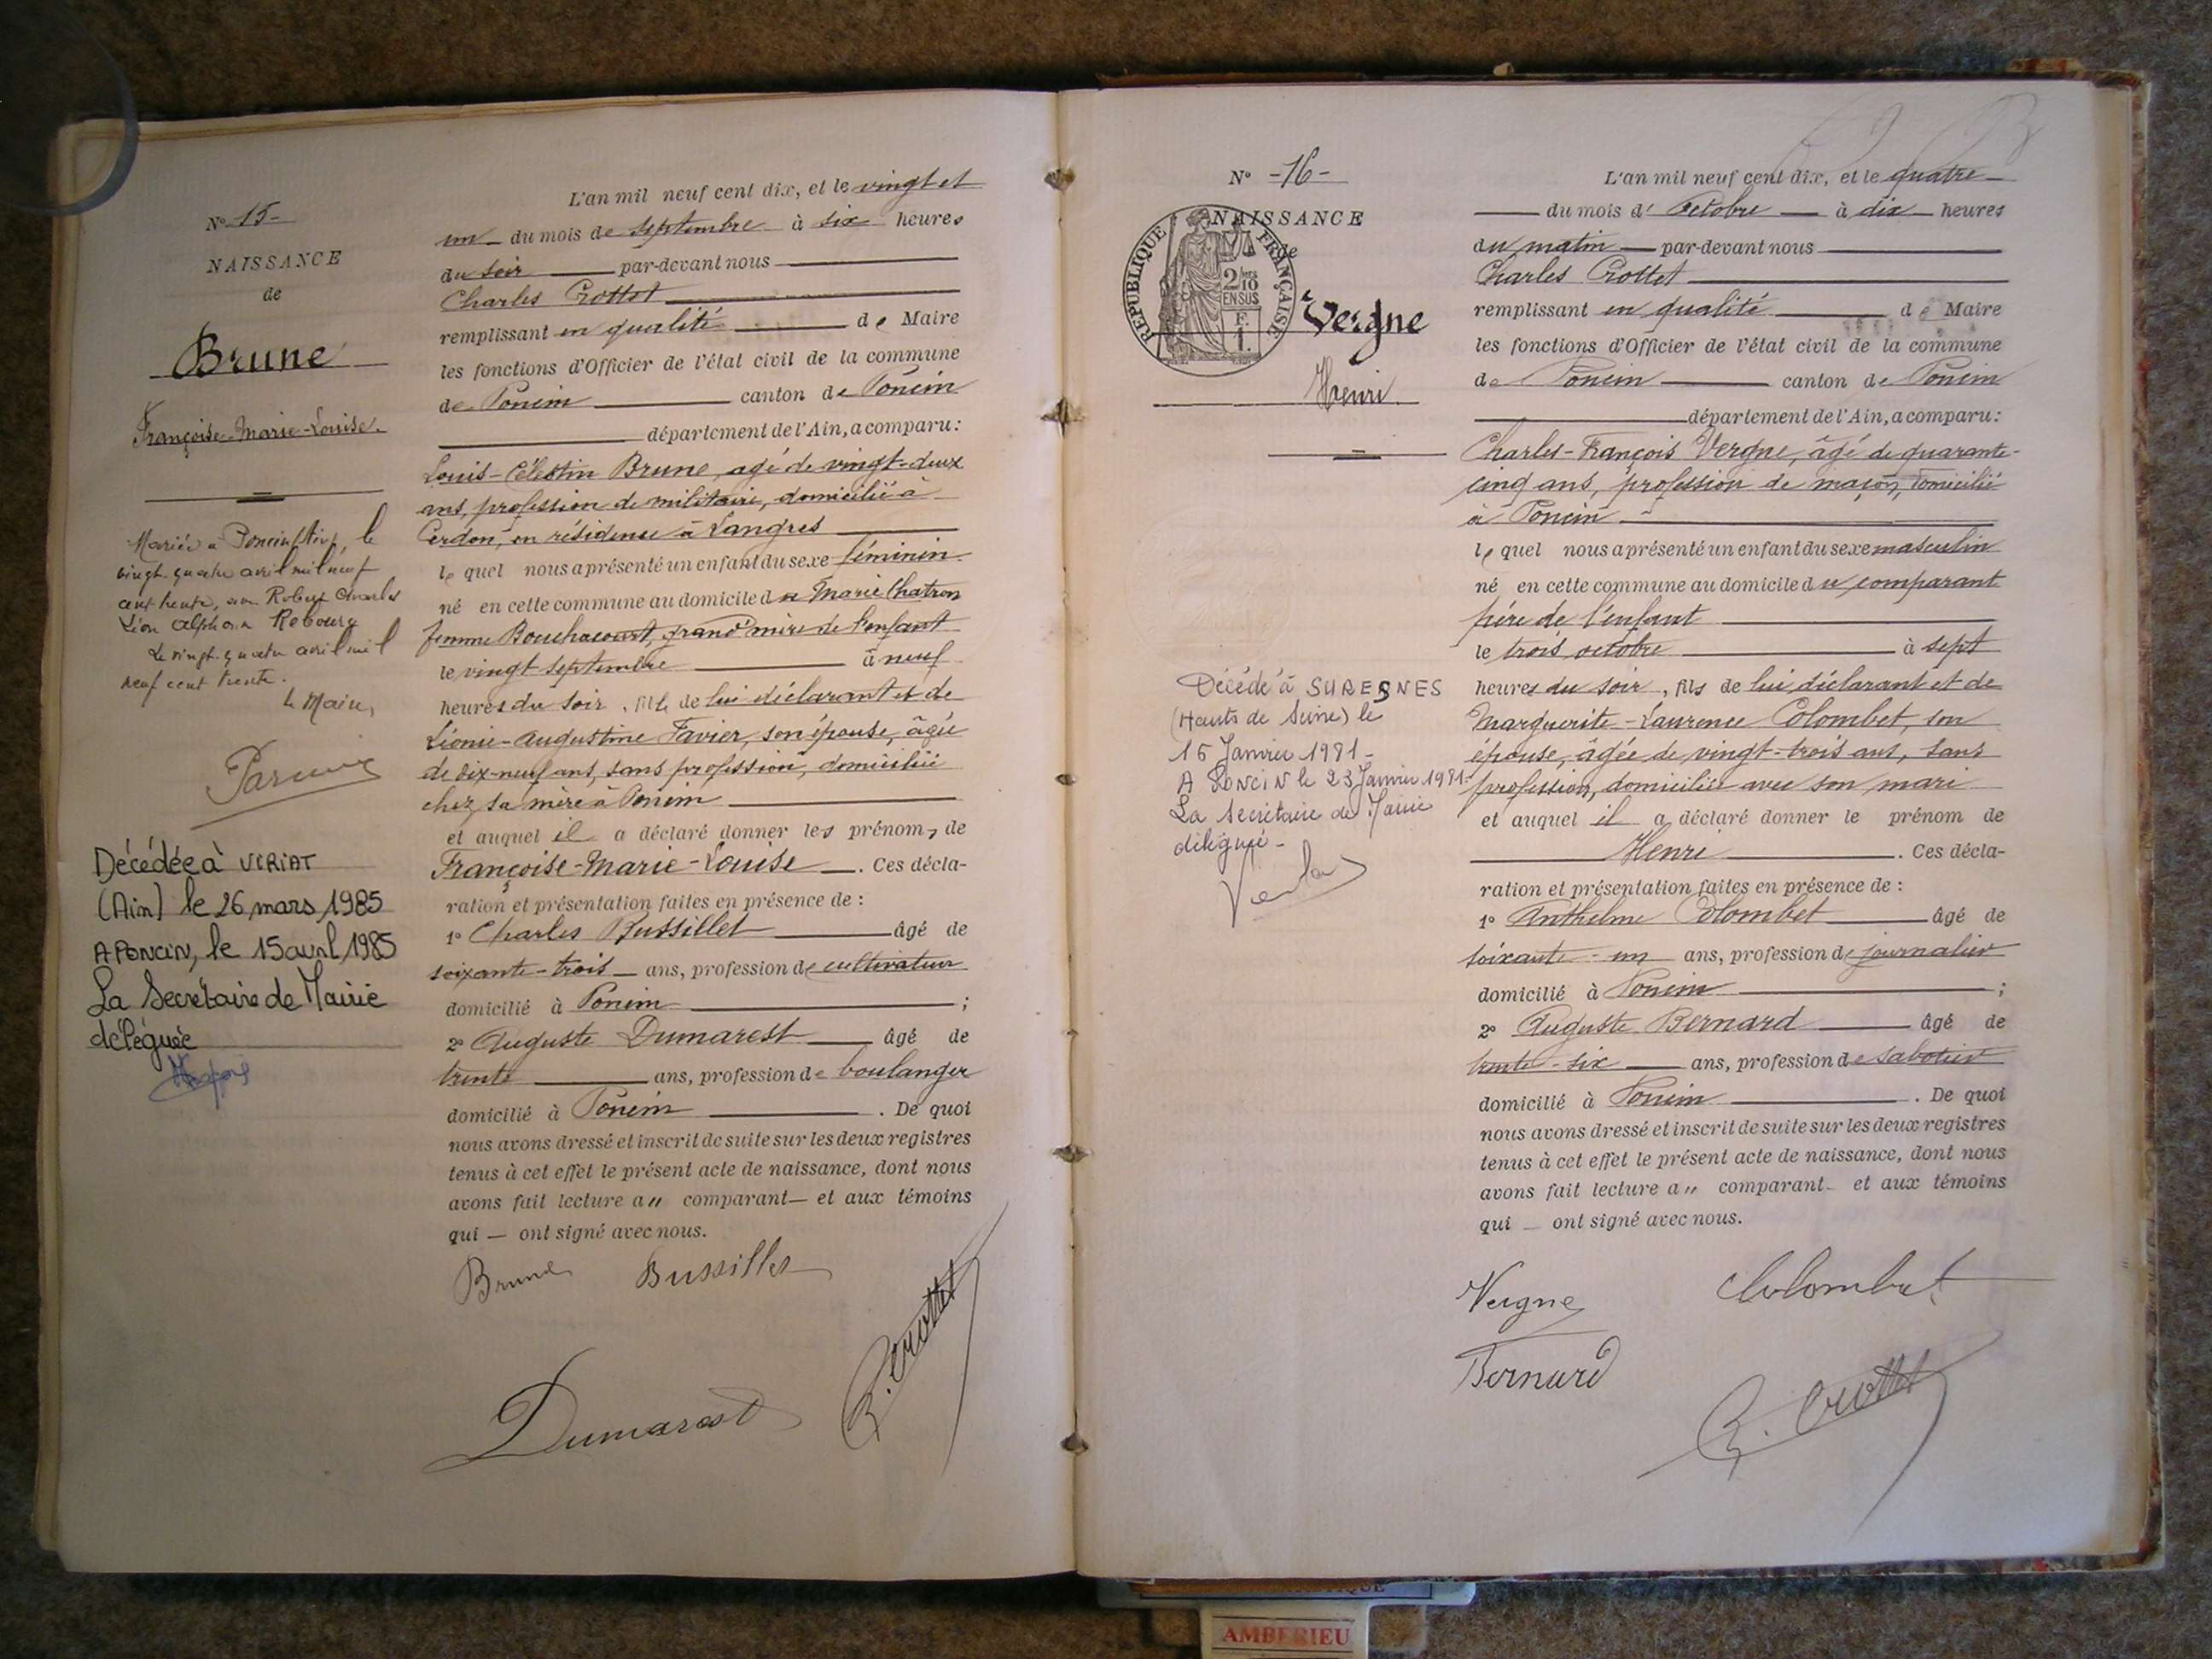 N° 15-
NAISSANCE
de
Brune
Françoise-Marie-Louise.
Mariée à Poncin (Ain), le
vingt-quatre avril mil neuf
cent trente, avec Robert Charles
Léon Alphonse Rebourg
Le vingt-quatre avril mil
neuf cent trente.
Le Maire,
Décédée à VIRIAT
(Ain) le 26 mars 1985
A PONCIN, le 15 avril 1985
La Secrétaire de Mairie
déléguée
L'an mil neuf cent dix, et le vingt et
un du mois de septembre à six heures
du soir par-devant nous
Charles Crottet
remplissant en qualité de Maire
les fonctions d'Officier de l'état civil de la commune
de Poncin canton de Poncin
département de l'Ain, a comparu:
Louis-Célestin Brune, âgé de vingt-deux
ans, profession de militaire, domicilié à
Cerdon, en résidence à Langres
le quel nous a présenté un enfant du sexe féminin
né en cette commune au domicile de Marie Chatron
femme Bouchacourt, grand'mère de l'enfant
le vingt septembre à neuf
heures du soir, fille de lui déclarant et de
Léonie-Augustine Favier, son épouse, âgée
de dix-neuf ans, sans profession, domiciliée
chez sa mère à Poncin
et auquel il a déclaré donner les prénoms de
Françoise-Marie-Louise. Ces décla-
ration et présentation faites en présence de :
1° Charles Bussillet âgé de
soixante-trois ans, profession de cultivateur
domicilié à Poncin ;
2° Auguste Dumarest âgé de
trente ans, profession de boulanger
domicilié à Poncin. De quoi
nous avons dressé et inscrit de suite sur les deux registres
tenus à cet effet le présent acte de naissance, dont nous
avons fait lecture au comparant et aux témoins
qui ont signé avec nous.
Brune Bussillet
Dumarest C. Crottet
N° -16-
NAISSANCE
de
RÉPUBLIQUE FRANÇAISE
2/10
EN SUS
F.
1.
Vergne
Henri.
Décédé à SURESNES
(Hauts de Seine) le
15 Janvier 1981-
A PONCIN le 23 Janvier 1981-
La Secrétaire de Mairie
délégué-
L'an mil neuf cent dix, et le quatre
du mois d'Octobre à dix heures
du matin par-devant nous
Charles Crottet
remplissant en qualité de Maire
les fonctions d'Officier de l'état civil de la commune
de Poncin canton de Poncin
département de l'Ain, a comparu:
Charles-François Vergne, âgé de quarante-
cinq ans, profession de maçon, domicilié
à Poncin
le quel nous a présenté un enfant du sexe masculin
né en cette commune au domicile du comparant
père de l'enfant
le trois octobre à sept
heures du soir, fils de lui déclarant et de
Marguerite-Laurence Colombet, son
épouse, âgée de vingt-trois ans, sans
profession, domiciliée avec son mari
et auquel il a déclaré donner le prénom de
Henri. Ces décla-
ration et présentation faites en présence de :
1° Anthelme Colombet âgé de
soixante-un ans, profession de journalier
domicilié à Poncin ;
2° Auguste Bernard âgé de
trente-six ans, profession de sabotier
domicilié à Poncin. De quoi
nous avons dressé et inscrit de suite sur les deux registres
tenus à cet effet le présent acte de naissance, dont nous
avons fait lecture au comparant et aux témoins
qui ont signé avec nous.
Vergne Colombet
Bernard C. Crottet
AMBERIEU